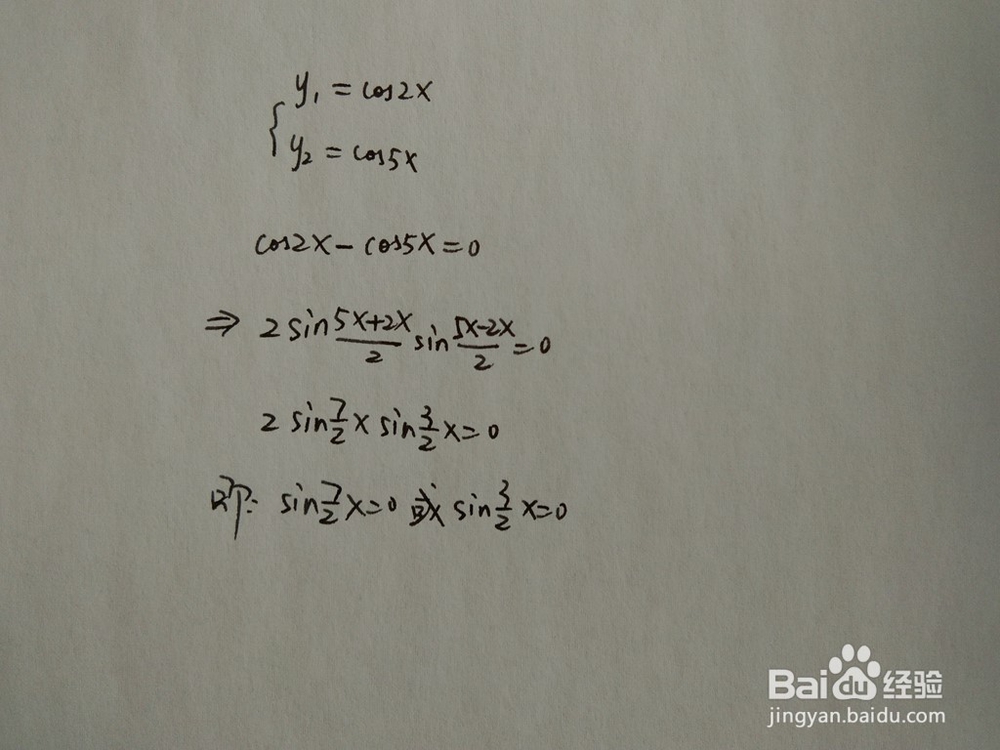 y₁ = cos2x
y₂ = cos5x
cos2x - cos5x = 0
⇒ 2 sin (5x+2x)/2 sin (5x-2x)/2 = 0
2 sin 7/2 x sin 3/2 x = 0
即: sin 7/2 x = 0 或 sin 3/2 x = 0
Baidu 经验
jingyan.baidu.com